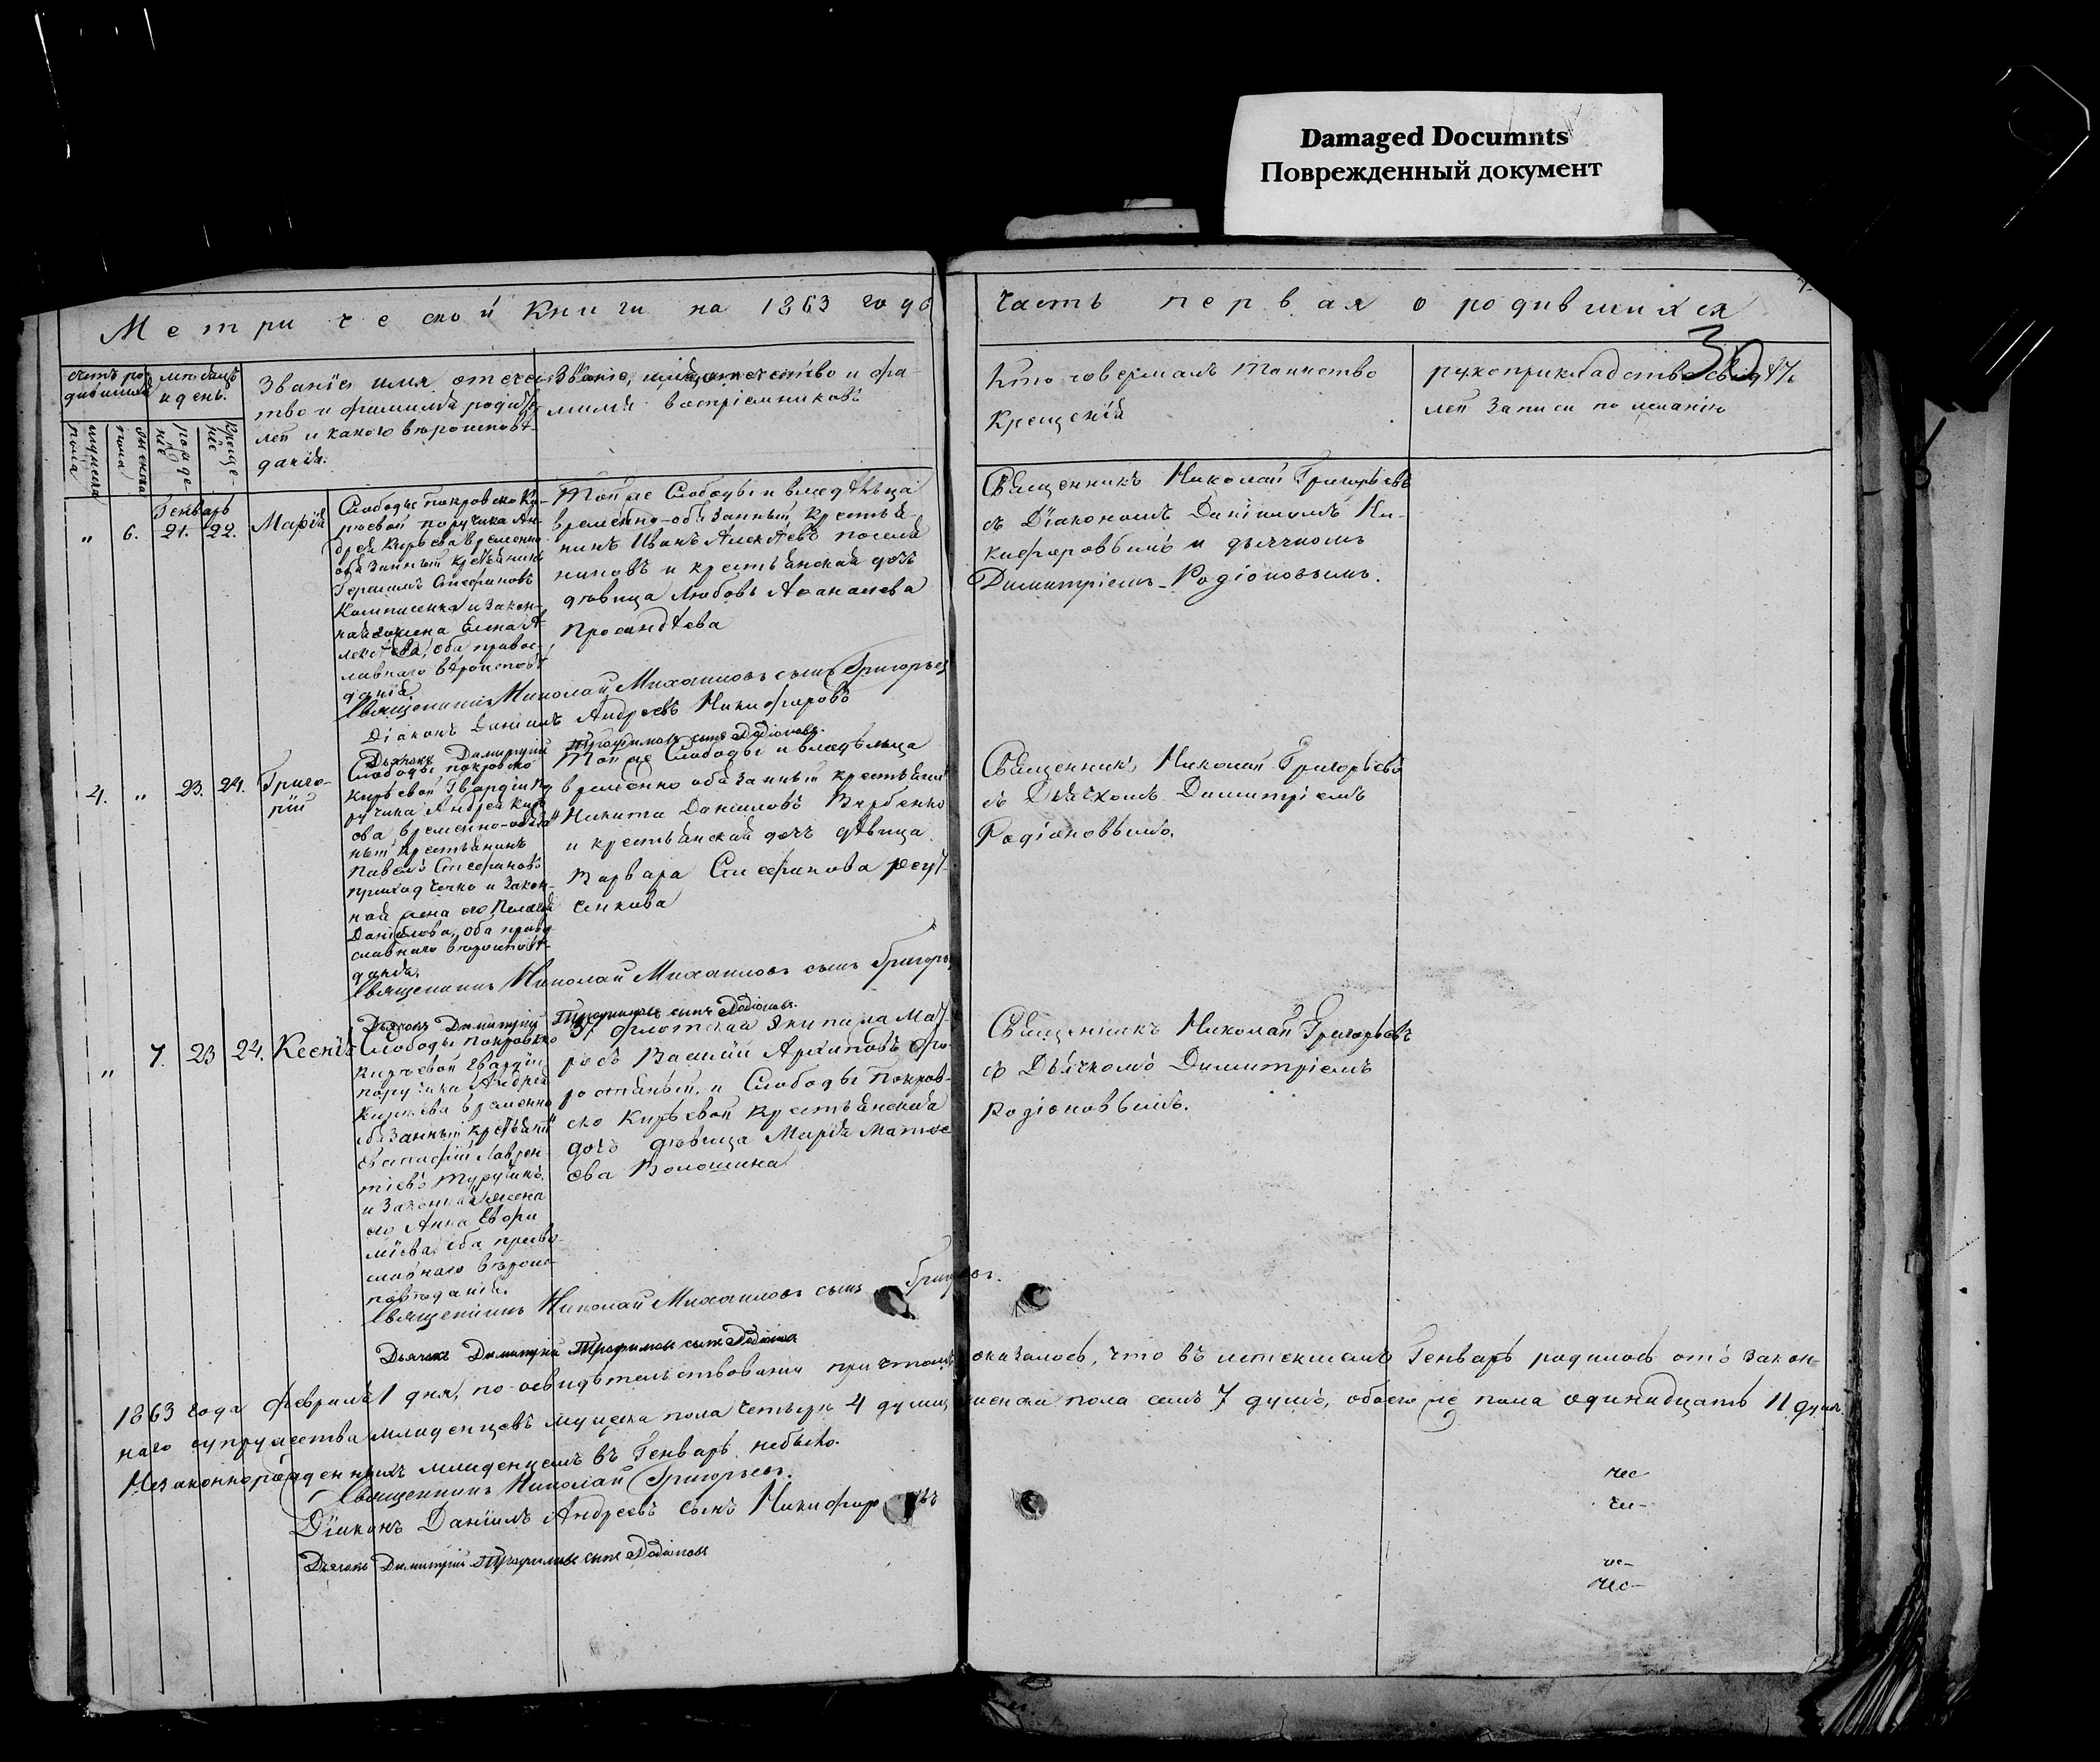 Damaged Documnts
Поврежденный документ
Метрической Книги на 1863 годъ
часть первая о родившихся
30
счетъ ро-
дившихся
мѣсяцъ
и день.
мужеска
пола
женска
пола
рожде-
нія
Креще-
нія
Званіе имя отече-
тво и фамилія родите
лей и какого вѣроисповѣ-
данія.
Званіе, имя, отечество и фа-
милія воспріемниковъ
Кто совершалъ таинство
Крещенія
рукоприкладство свидѣте
лей записи по желанію
Генварь
„ 6. 21. 22. Марія
Слободы покровско Ки-
рѣевой поручика Ан-
дрея Кирѣева временно
обязанный крестьянинъ
Герасимъ Стефановъ
и закон-
ная жена Елена А-
лексѣева, оба правос-
лавнаго вѣроисповѣ
данія.
Той же Слободы и владѣльца
временно-обязанный крестья-
нинъ Иванъ Алексѣевъ
и крестьянская дочь
дѣвица Любовь Афанасьева
Священникъ Николай Григорьевъ
съ Діакономъ Даніиломъ Ни-
кифоровымъ и дьячкомъ
Димитріемъ Родіоновымъ.
Священникъ Николай Михаиловъ сынъ Григорьев
Діаконъ Даніилъ Андреевъ Никифоровъ
Дьячокъ Димитрій Трофимовъ сынъ Родіоновъ.
4. „ 23. 24. Григо-
рій
Слободы покровско
Кирѣевой Гвардіи по
ручика Андрея Кирѣ
ева временно-обязан
ный крестьянинъ
Павелъ Стефановъ
Приходченко и закон-
ная жена его Пелагея
Даніилова, оба право
славнаго вѣроисповѣ-
данія.
Той же Слободы и владѣльца
временно обязанный крестьянинъ
Никита Даніиловъ Вербенко
и крестьянская дочь дѣвица
Варвара Стефанова
Священникъ Николай Григорьевъ
съ Дьячкомъ Димитріемъ
Родіоновымъ.
Священникъ Николай Михаиловъ сынъ Григорьев
Дьячокъ Димитрій Трофимовъ сынъ Родіоновъ.
„ 7. 23 24. Ксенія
Слободы покровско
Кирѣевой Гвардіи
поручика Андрея
Кирѣева временно
обязанный крестьянин
Евстафій Лаврен-
тіевъ
и законная жена
его Анна Евфи
міева, оба право-
славнаго вѣроис-
повѣданія.
37 флотскаго Экипажа Мат-
росъ Василій Архиповъ
и Слободы Покров-
ско Кирѣевой крестьянская
дочь дѣвица Марія Матѳе
ева Волошина
Священникъ Николай Григорьевъ
съ Дьячкомъ Димитріемъ
Родіоновымъ.
Священникъ Николай Михаиловъ сынъ Григорьев.
Дьячокъ Димитрій Трофимовъ сынъ Родіоновъ
1863 года февраля 1 дня, по освидѣтельствованіи причтомъ оказалось, что въ истекшемъ Генварѣ родилось отъ закон-
наго супружества младенцевъ мужеска пола четыре 4 души, женска пола семь 7 душъ, обоего же пола одинадцать 11 душъ.
Незаконнорожденныхъ младенцевъ въ Генварѣ небыло.
Священникъ Николай Григорьевъ.
Діаконъ Даніилъ Андреевъ сынъ Никифоровъ
Дьячокъ Димитрій Трофимовъ сынъ Родіоновъ